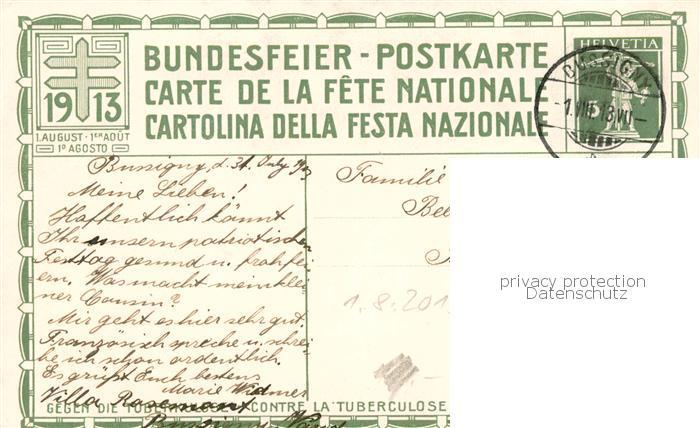 BUNDESFEIER - POSTKARTE
CARTE DE LA FÊTE NATIONAL
CARTOLINA DELLA FESTA NAZIONAL
HELVETIA
5
BUSSIGNY
-1.VIII.13.VII-
1913
1. AUGUST · 1ER AOÛT
1º AGOSTO
Bussigny, d. 31. July 1913
Meine Lieben!
Haffentlich kännt
Ihr unsern patriotischen
Festtag gesund u. froh fei-
ern, Was macht mein klei-
ner Cousin?
Mir geht es hier sehr gut.
Französisch spreche u. schrei-
be ich schon ordentlich.
Es grüßt Euch bestens
Marie Widmer
Villa Rosemont
Bussigny Vaud
Familie
Be
1.8.201
privacy protection
Datenschutz
GEGEN DIE TUBERKULOSE CONTRE LA TUBERCULOSE